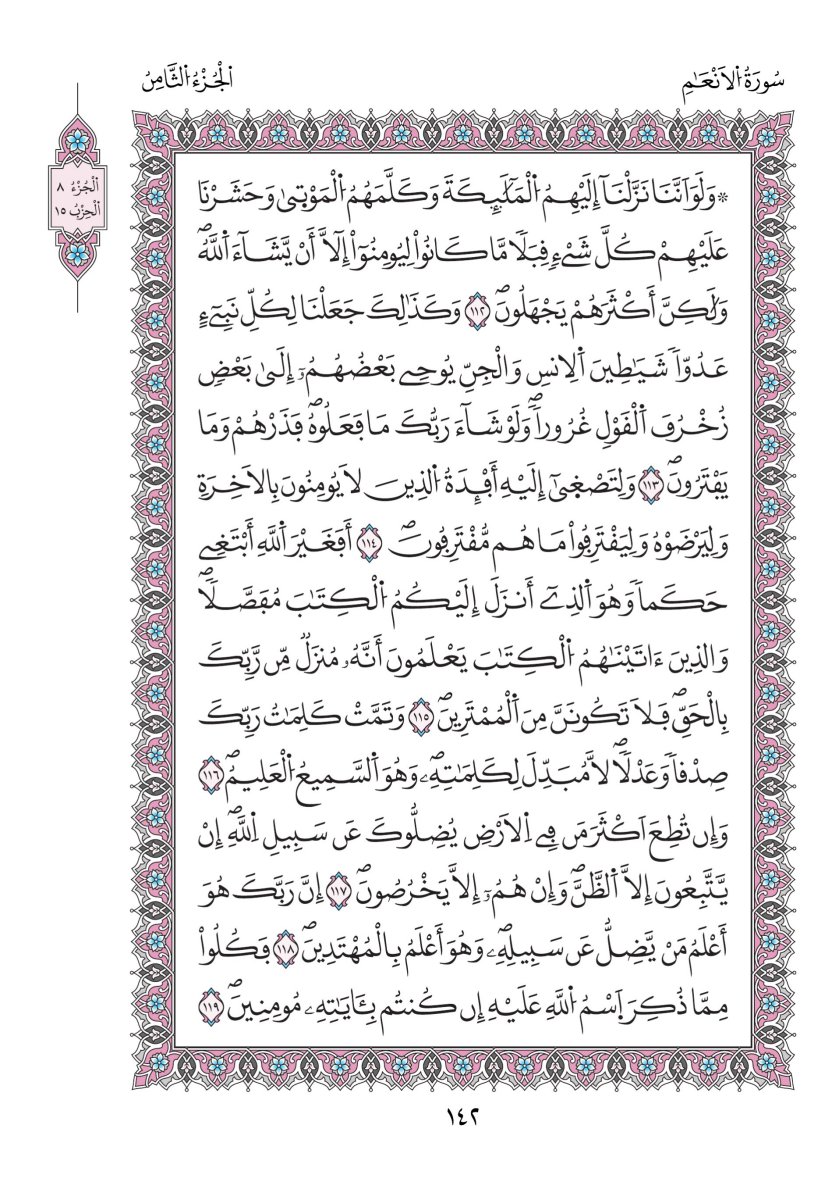 سُورَةُ اُ۬لَانْعَٰمِ
اُ۬لْجُزْءُ اُ۬لثَّامِنُ
اَ۬لْجُزْءُ ٨
اَ۬لْحِزْبُ ١٥
۞ وَلَوَ اَنَّنَا نَزَّلْنَآ إِلَيْهِمُ اُ۬لْمَلَٰٓئِكَةَ وَكَلَّمَهُمُ اُ۬لْمَوْتۭيٰ وَحَشَرْنَا
عَلَيْهِمْ كُلَّ شَےْءٖ قِبَلاٗ مَّا كَانُواْ لِيُومِنُوٓاْ إِلَّآ أَنْ يَّشَآءَ اَ۬للَّهُۖ
وَلَٰكِنَّ أَكْثَرَهُمْ يَجْهَلُونَۖ ١١٢ وَكَذَٰلِكَ جَعَلْنَا لِكُلِّ نَبِےٓءٍ
عَدُوّاٗ شَيَٰطِينَ اَ۬لِانسِ وَالْجِنِّ يُوحِے بَعْضُهُمُۥٓ إِلَىٰ بَعْضٖ
زُخْرُفَ اَ۬لْقَوْلِ غُرُوراٗۖ وَلَوْ شَآءَ رَبُّكَ مَا فَعَلُوهُۖ فَذَرْهُمْ وَمَا
يَفْتَرُونَۖ ١١٣ وَلِتَصْغۭيٰٓ إِلَيْهِ أَفْـِٕدَةُ اُ۬لذِينَ لَا يُومِنُونَ بِالَاخِرَةِ
وَلِيَرْضَوْهُ وَلِيَقْتَرِفُواْ مَا هُم مُّقْتَرِفُونَۖ ١١٤ أَفَغَيْرَ اَ۬للَّهِ أَبْتَغِے
حَكَماٗ وَهُوَ اَ۬لذِےٓ أَنزَلَ إِلَيْكُمُ اُ۬لْكِتَٰبَ مُفَصَّلاٗۖ
وَالذِينَ ءَاتَيْنَٰهُمُ اُ۬لْكِتَٰبَ يَعْلَمُونَ أَنَّهُۥ مُنزَلٞ مِّن رَّبِّكَ
بِالْحَقِّۖ فَلَا تَكُونَنَّ مِنَ اَ۬لْمُمْتَرِينَۖ ١١٥ وَتَمَّتْ كَلِمَٰتُ رَبِّكَ
صِدْقاٗ وَعَدْلاٗۖ لَّا مُبَدِّلَ لِكَلِمَٰتِهِۦۖ وَهُوَ اَ۬لسَّمِيعُ اُ۬لْعَلِيمُۖ ١١٦
وَإِن تُطِعَ اَكْثَرَ مَن فِے اِ۬لَارْضِ يُضِلُّوكَ عَن سَبِيلِ اِ۬للَّهِۖ إِنْ
يَّتَّبِعُونَ إِلَّا اَ۬لظَّنَّۖ وَإِنْ هُمُۥٓ إِلَّا يَخْرُصُونَۖ ١١٧ إِنَّ رَبَّكَ هُوَ
أَعْلَمُ مَنْ يَّضِلُّ عَن سَبِيلِهِۦۖ وَهُوَ أَعْلَمُ بِالْمُهْتَدِينَۖ ١١٨ فَكُلُواْ
مِمَّا ذُكِرَ اَ۪سْمُ اُ۬للَّهِ عَلَيْهِ إِن كُنتُم بِـَٔايَٰتِهِۦ مُومِنِينَۖ ١١٩
١٤٢